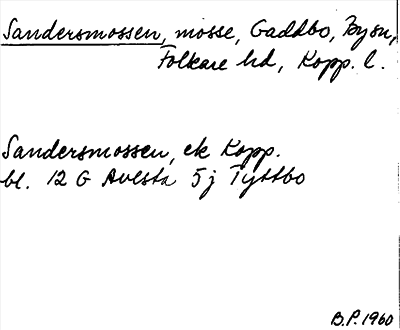 Sandersmossen, mosse, Gaddbo, By sn,
Folkare hd, Kopp. l.
Sandersmossen, ek Kopp.
bl. 12 G Avesta 5 j Tyttbo
B.P. 1960